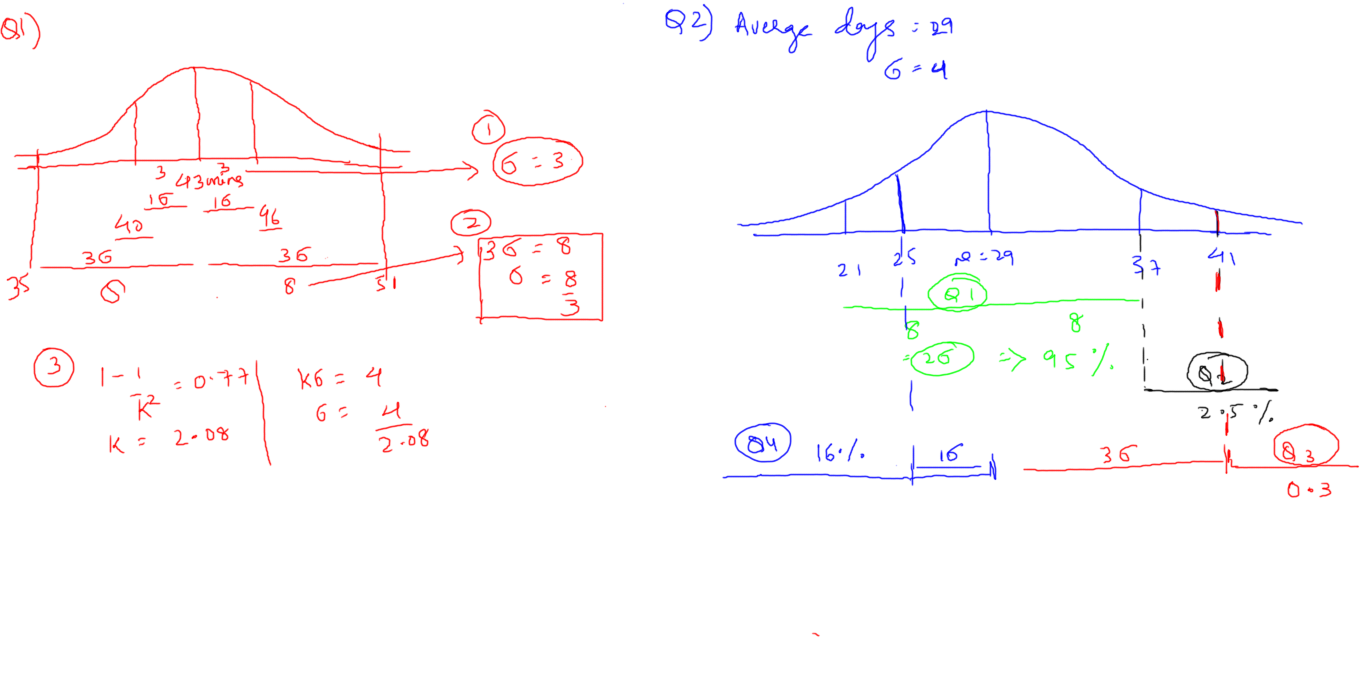 Q1)
3 3
43mins
1σ 1σ
40 46
3σ 3σ
35 8 8 51
1
σ = 3
2
3σ = 8
σ = 8
3
3
1 - 1 = 0.77
K²
K = 2.08
Kσ = 4
σ = 4
2.08
Q2) Averge days = 29
σ = 4
21 25 x = 29 37 41
Q1
8 8
= 2σ => 95 %
Q2
2.5 %
Q4 16% 1σ 3σ Q3
0.3